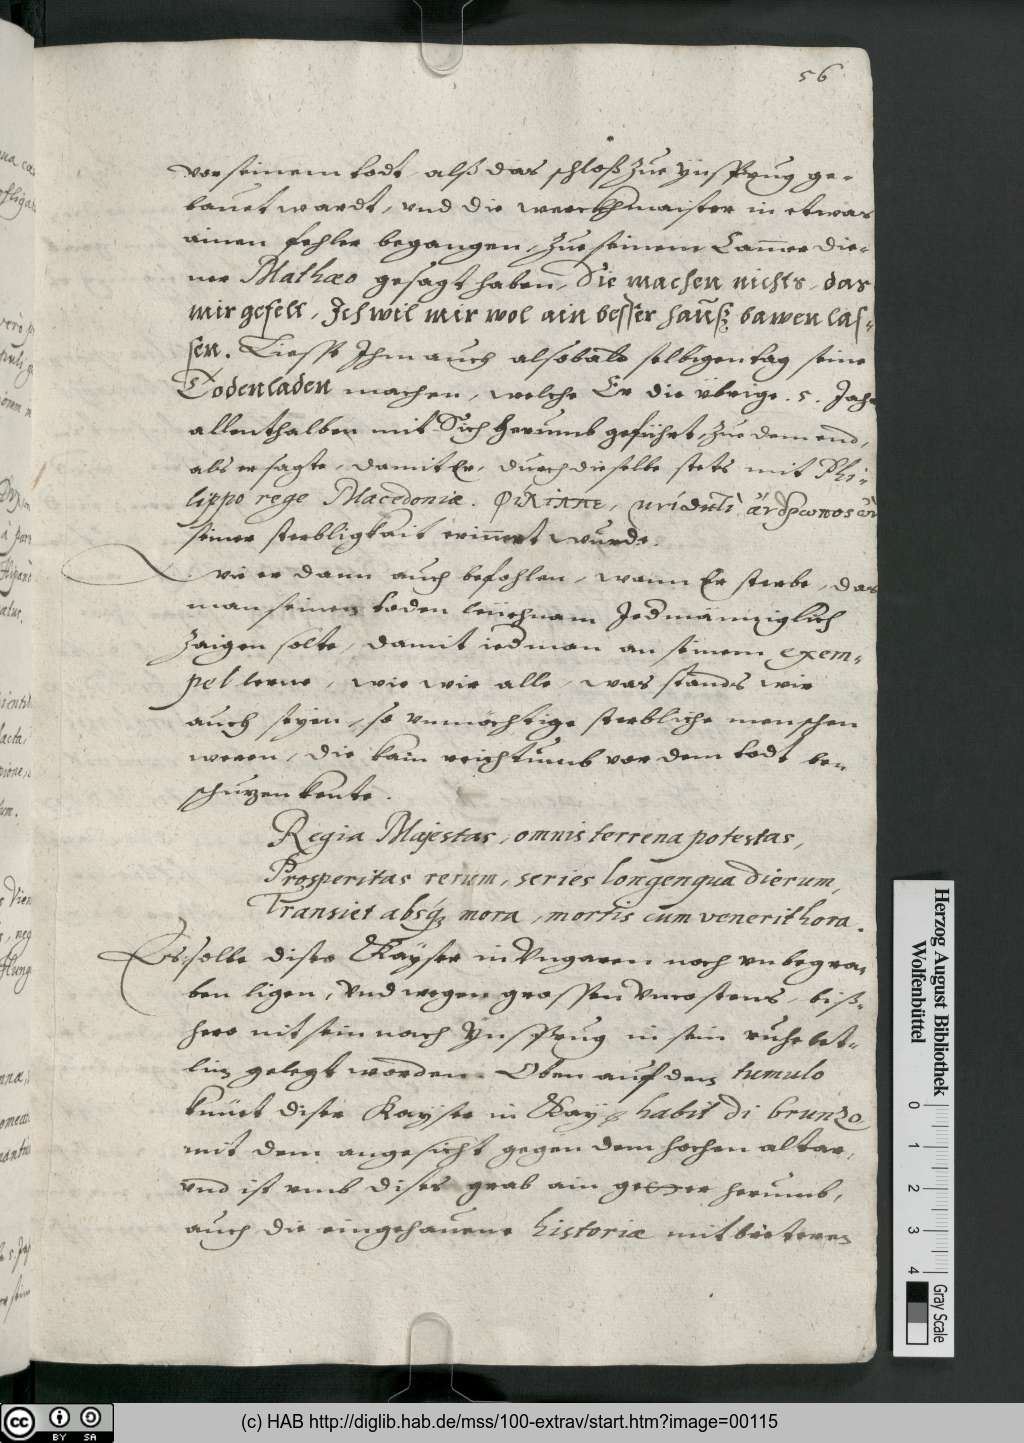 56
vor seinem todt, alß das schloß zue Ynsprug ge-
bauet wardt, vnd die werckhmaister in etwas
ainen fehler begangen, Zue seinem Cam̄er die-
ner Mathæo gesagt haben, Sie machen nichts, das
mir gefelt, Ich wil mir wol ain besser hauß bawen las-
sen. Liesse Ihm auch alsobald selbigen tag seine
Todenladen machen, welche Er die übrige .5. Jahr
allenthalben mit Sich herumb geführt, zue dem end,
als er sagte, damit Er, durch dieselbe stets mit Phi-
lippo rege Macedoniæ. Φίλιππε, ἄνθρωπος
seiner sterbligkait erin̄ert wurde.
wie er dann auch befohlen, wann Er sterbe, das
man seinen toden leichnam Jedmänniglich
zaigen solte, damit iedman an seinem exem-
pel lerne, wie wir alle, was stands wir
auch seyen, so vnmächtige sterbliche menschen
weren, die kain reichtumb vor dem todt be-
schuzen kente.
Regia Majestas, omnis terrena potestas,
Prosperitas rerum, series longenqua dierum,
Transiet absq; mora, mortis cum venerit hora.
Es solle diser Kayser in Vngaren noch vnbegra-
ben ligen, vnd wegen grossen vncostens, biß-
hero nit sein nach Ynsprug in sein ruhebet-
lin gelegt worden. Oben auf dem tumulo
kniiet diser Kayser in Kay: habit di brunzo
mit dem angesicht gegen dem hochen altar,
vnd ist vmb dises grab ain getter herumb,
auch die eingehauene historiæ mit
Herzog August Bibliothek
Wolfenbüttel
0 1 2 3 4
Gray Scale
cc BY SA
(c) HAB http://diglib.hab.de/mss/100-extrav/start.htm?image=00115